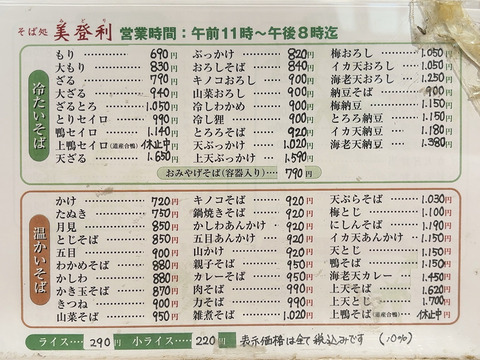 そば処 美登利 営業時間：午前11時〜午後8時迄
みどり
冷たいそば
もり 690円
大もり 830円
ざる 790円
大ざる 940円
ざるとろ 1.050円
とりセイロ 990円
鴨セイロ 1.140円
上鴨セイロ(道産合鴨) 休止中
天ざる 1.650円
ぶっかけ 820円
おろしそば 840円
キノコおろし 900円
山菜おろし 900円
冷しわかめ 900円
冷し狸 900円
とろろそば 920円
天ぶっかけ 1.020円
上天ぶっかけ 1.590円
梅おろし 1.050円
イカ天おろし 1.050円
海老天おろし 1.250円
納豆そば 900円
梅納豆 1.050円
とろろ納豆 1.150円
イカ天納豆 1.180円
海老天納豆 1.380円
おみやげそば(容器入り) 790円
温かいそば
かけ 720円
たぬき 750円
月見 850円
とじそば 850円
五目 900円
わかめそば 880円
かしわ 880円
かき玉そば 870円
きつね 900円
山菜そば 950円
キノコそば 920円
鍋焼きそば 920円
かしわあんかけ 920円
五目あんかけ 920円
山かけ 920円
親子そば 950円
カレーそば 950円
肉そば 950円
力そば 990円
雑煮そば 1.020円
天ぷらそば 1.030円
梅とじ 1.100円
にしんそば 1.190円
イカ天あんかけ 1.150円
天とじ 1.150円
鴨そば 1.150円
海老天カレー 1.450円
上天そば 1.620円
上天とじ 1.700円
上鴨そば(道産合鴨) 休止中
ライス 290円 小ライス 220円 表示価格は全て税込みです (10%)